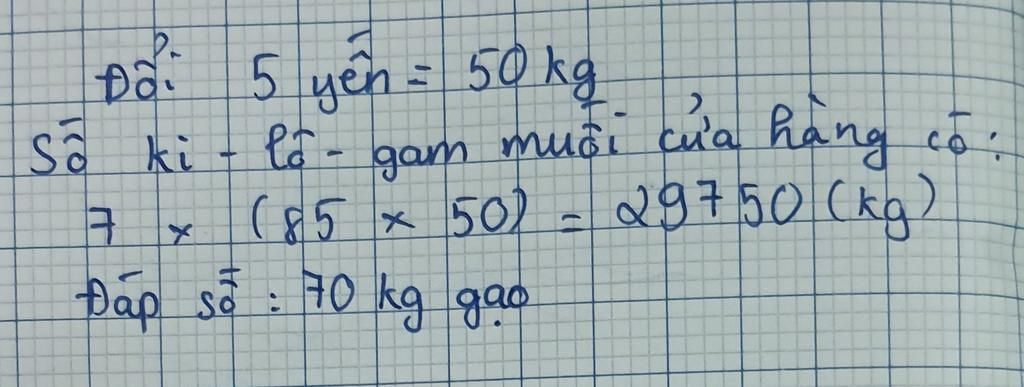 Đổi 5 yến = 50 kg
Số ki - lô - gam muối cửa hàng có:
7 x (85 x 50) = 29750 (kg)
Đáp số : 70 kg gạo